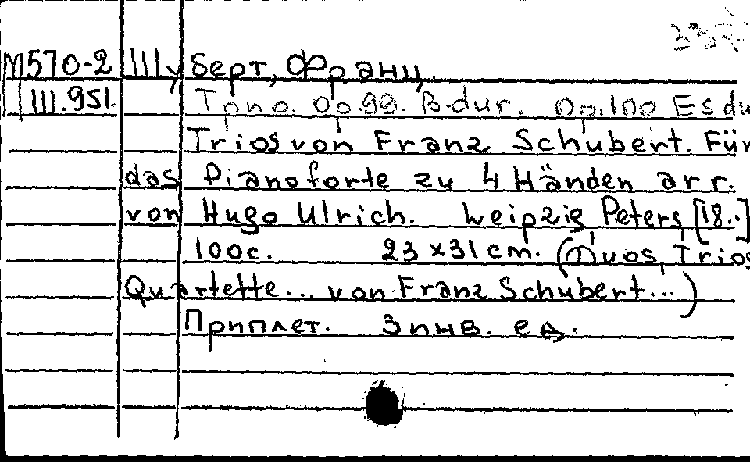 М570-2 Шуберт, Франц
Ш.951 Трио. Op.99. B-dur. Op.100 Es du
Trios von Franz Schubert. Für
das Pianoforte zu 4 Händen arr.
von Hugo Ulrich. Leipzig Peters, [18..]
100с. 23 x 31 cm. (Duos, Trios
Quartette... von Franz Schubert...)
Приплет. 3 инв. ед.